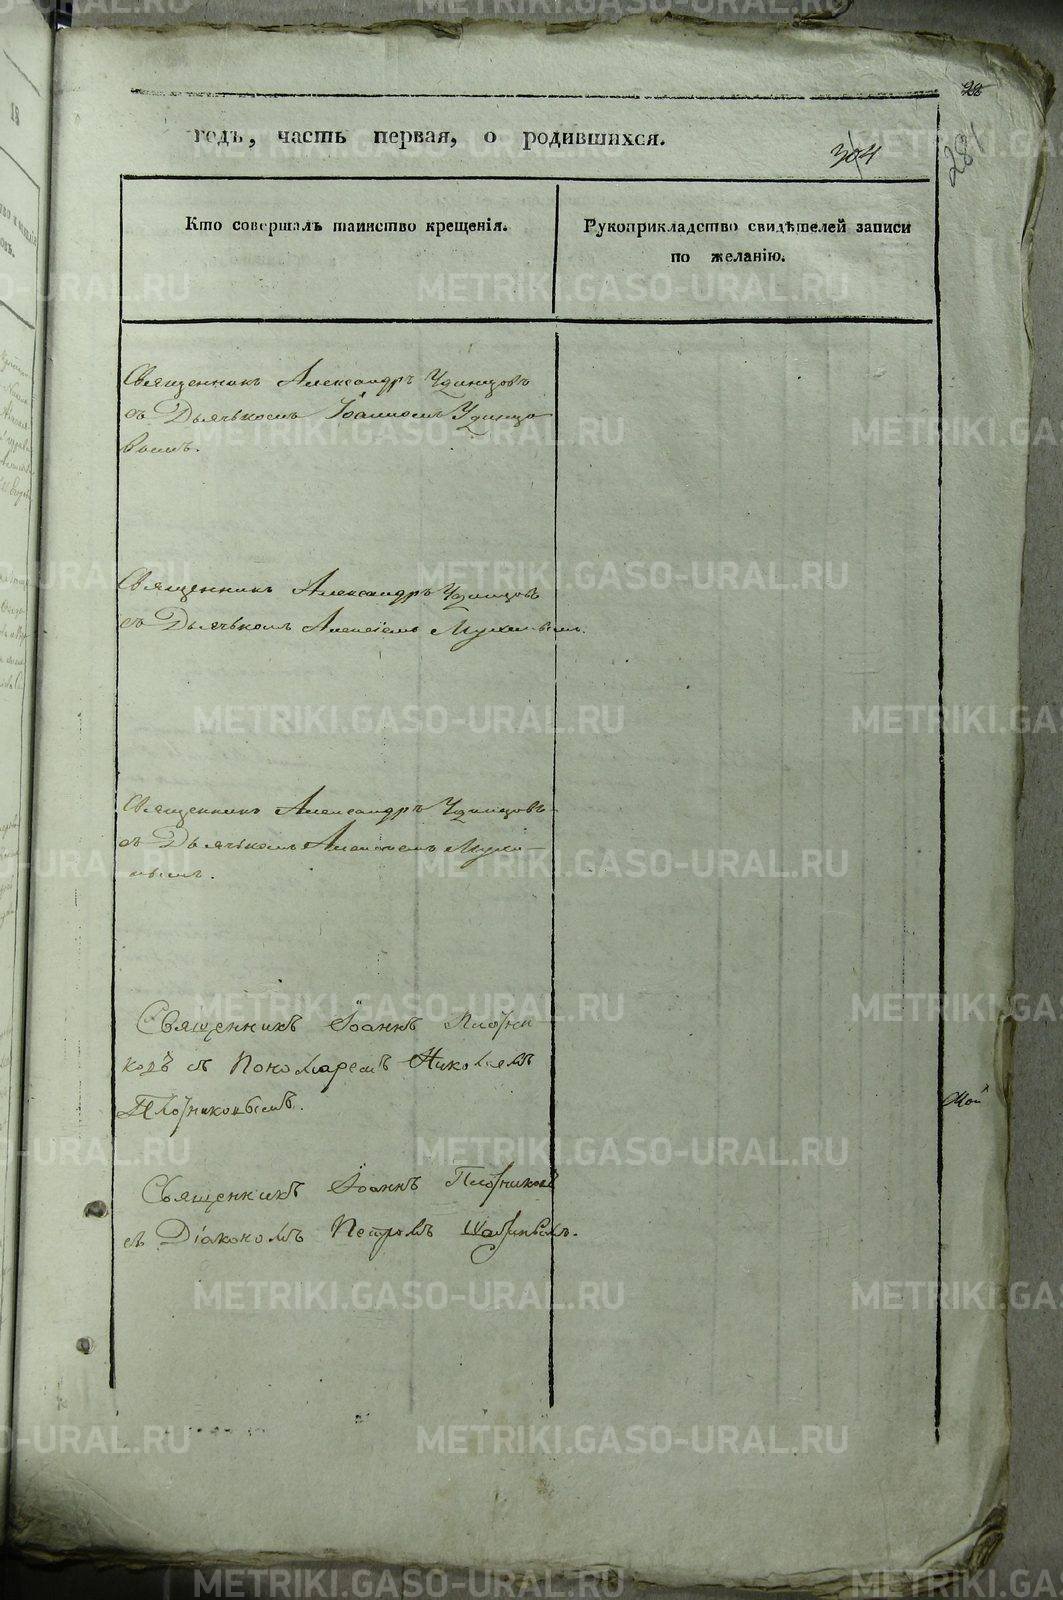 годъ, часть первая, о родившихся.
304
281
Кто совершалъ таинство крещенія.
Рукоприкладство свидѣтелей записи
по желанію.
Священникъ Александръ Удинцовъ
съ Дьячькомъ Іоанномъ Удинцо
вымъ.
Священникъ Александръ Удинцовъ
съ Дьячькомъ Алексіемъ
Священникъ Александръ Удинцовъ
съ Дьячькомъ Алексіемъ
нымъ.
Священникъ Іоаннъ Плотни
ковъ съ Пономаремъ Николаемъ
Плотниковымъ.
Священникъ Іоаннъ Плотниковъ
съ Діакономъ Петромъ
METRIKI.GASO-URAL.RU